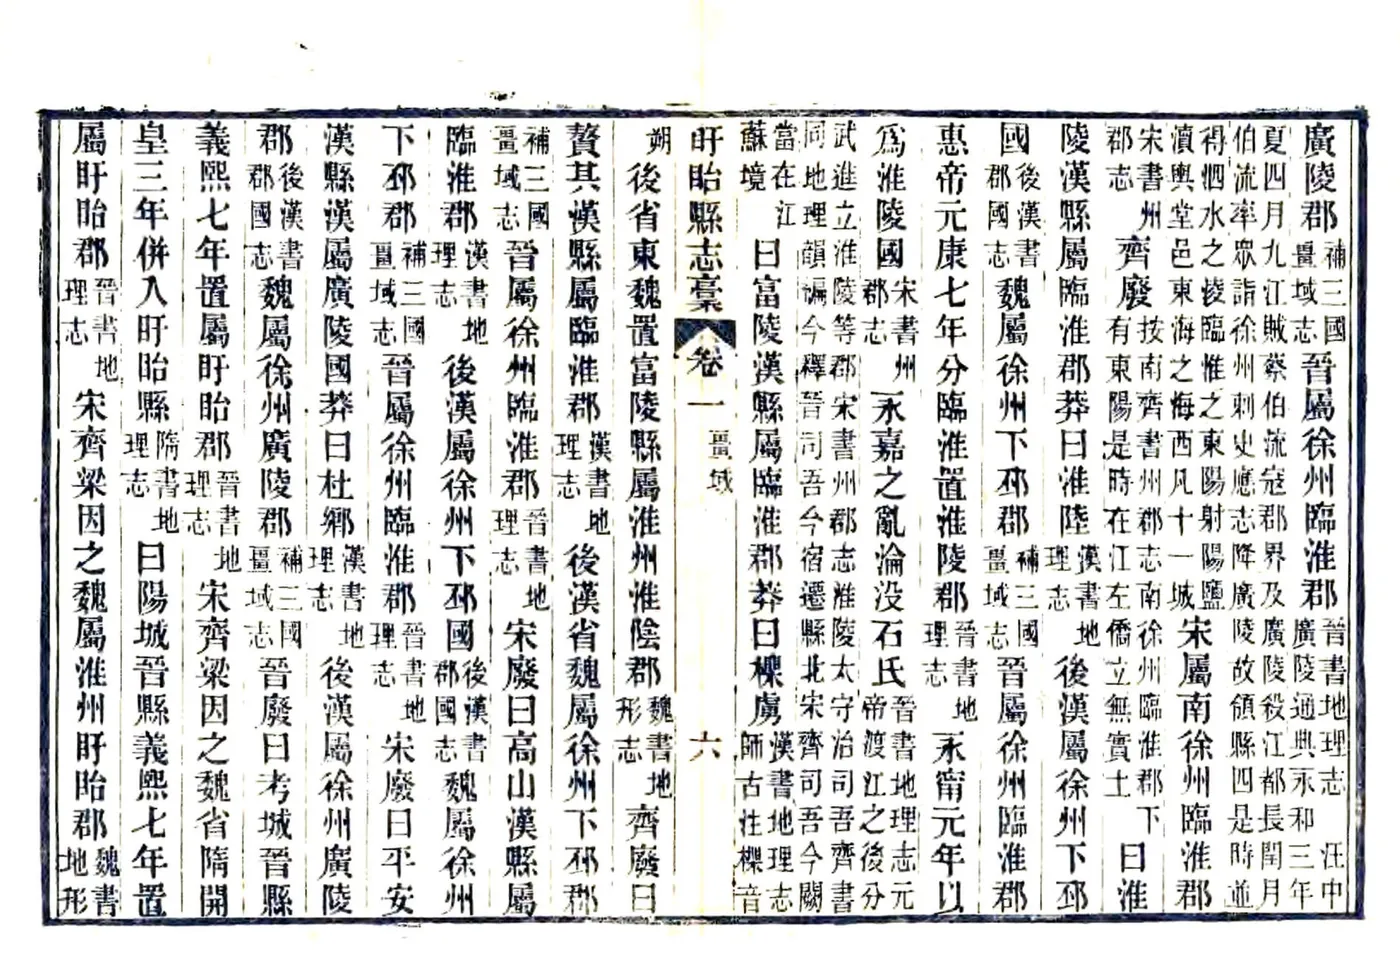 廣陵郡補三國疆域志晉屬徐州臨淮郡晉書地理志 汪中廣陵通典永和三年
夏四月九江賊蔡伯流寇郡界及廣陵殺江都長閏月
伯流率眾詣徐州刺史應志降廣陵故領縣四是時並
得泗水之淩臨惟之東陽射陽鹽瀆輿堂邑東海之海西凡十一城宋屬南徐州臨淮郡
宋書州郡志齊廢按南齊書州郡志南徐州臨淮郡下有東陽是時在江左僑立無實土曰淮
陵漢縣屬臨淮郡莽曰淮陸漢書地理志後漢屬徐州下邳
國後漢書郡國志魏屬徐州下邳郡補三國疆域志晉屬徐州臨淮郡
惠帝元康七年分臨淮置淮陵郡晉書地理志永甯元年以
爲淮陵國宋書州郡志永嘉之亂淪没石氏晉書地理志元帝渡江之後分
武進立淮陵等郡宋書州郡志淮陵太守治司吾齊書
同地理韻編今釋晉司吾今宿遷縣北宋齊司吾今闕
當在江蘇境曰富陵漢縣屬臨淮郡莽曰樔虜漢書地理志師古注樔音
盱眙縣志稾 卷一 疆域 六
朔後省東魏置富陵縣屬淮州淮陰郡魏書地形志齊廢曰
贅其漢縣屬臨淮郡漢書地理志後漢省魏屬徐州下邳郡
補三國疆域志晉屬徐州臨淮郡晉書地理志宋廢曰高山漢縣屬
臨淮郡漢書地理志後漢屬徐州下邳國後漢書郡國志魏屬徐州
下邳郡補三國疆域志晉屬徐州臨淮郡晉書地理志宋廢曰平安
漢縣漢屬廣陵國莽曰杜鄉漢書地理志後漢屬徐州廣陵
郡後漢書郡國志魏屬徐州廣陵郡補三國疆域志晉廢曰考城晉縣
義熙七年置屬盱眙郡晉書地理志宋齊梁因之魏省隋開
皇三年併入盱眙縣隋書地理志曰陽城晉縣義熙七年置
屬盱眙郡晉書地理志宋齊梁因之魏屬淮州盱眙郡魏書地形